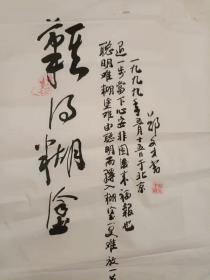 難得糊塗
聰明難糊塗難由聰明而轉入糊塗更難放一著
退一步當下心安非圖後來福報也
一九九九年五月十五日于北京